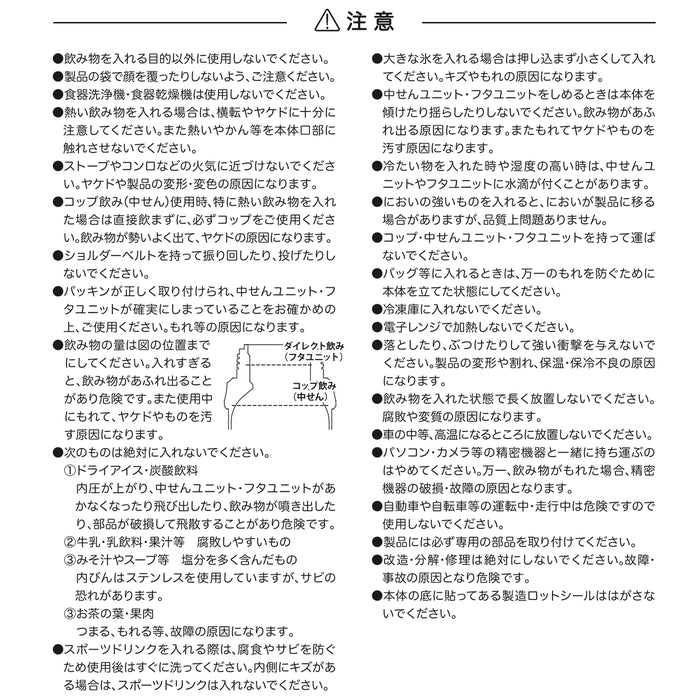 注意
●飲み物を入れる目的以外に使用しないでください。
●製品の袋で顔を覆ったりしないよう、ご注意ください。
●食器洗浄機・食器乾燥機は使用しないでください。
●熱い飲み物を入れる場合は、横転やヤケドに十分に
注意してください。また熱いやかん等を本体口部に
触れさせないでください。
●ストーブやコンロなどの火気に近づけないでくださ
い。ヤケドや製品の変形・変色の原因になります。
●コップ飲み(中せん)使用時、特に熱い飲み物を入れ
た場合は直接飲まずに、必ずコップをご使用くださ
い。飲み物が勢いよく出て、ヤケドの原因になります。
●ショルダーベルトを持って振り回したり、投げたりし
ないでください。
●パッキンが正しく取り付けられ、中せんユニット・フ
タユニットが確実にしまっていることをお確かめの
上、ご使用ください。もれ等の原因になります。
●飲み物の量は図の位置まで
にしてください。入れすぎる
と、飲み物があふれ出ること
があり危険です。また使用中
にもれて、ヤケドやものを汚
す原因になります。
ダイレクト飲み
(フタユニット)
コップ飲み
(中せん)
●次のものは絶対に入れないでください。
①ドライアイス・炭酸飲料
内圧が上がり、中せんユニット・フタユニットがあ
かなくなったり飛び出したり、飲み物が噴き出した
り、部品が破損して飛散することがあり危険です。
②牛乳・乳飲料・果汁等 腐敗しやすいもの
③みそ汁やスープ等 塩分を多く含んだもの
内びんはステンレスを使用していますが、サビの
恐れがあります。
③お茶の葉・果肉
つまる、もれる等、故障の原因になります。
●スポーツドリンクを入れる際は、腐食やサビを防ぐ
ため使用後はすぐに洗ってください。内側にキズがあ
る場合は、スポーツドリンクは入れないでください。
●大きな氷を入れる場合は押し込まず小さくして入れ
てください。キズやもれの原因になります。
●中せんユニット・フタユニットをしめるときは本体を
傾けたり揺らしたりしないでください。飲み物があふ
れ出る原因になります。またもれてヤケドやものを
汚す原因になります。
●冷たい物を入れた時や湿度の高い時は、中せんユ
ニットやフタユニットに水滴が付くことがあります。
●においの強いものを入れると、においが製品に移る
場合がありますが、品質上問題ありません。
●コップ・中せんユニット・フタユニットを持って運ば
ないでください。
●バッグ等に入れるときは、万一のもれを防ぐために
本体を立てた状態にしてください。
●冷凍庫に入れないでください。
●電子レンジで加熱しないでください。
●落としたり、ぶつけたりして強い衝撃を与えないで
ください。製品の変形や割れ、保温・保冷不良の原因
になります。
●飲み物を入れた状態で長く放置しないでください。
腐敗や変質の原因になります。
●車の中等、高温になるところに放置しないでください。
●パソコン・カメラ等の精密機器と一緒に持ち運ぶの
はやめてください。万一、飲み物がもれた場合、精密
機器の破損・故障の原因となります。
●自動車や自転車等の運転中・走行中は危険ですので
使用しないでください。
●製品には必ず専用の部品を取り付けてください。
●改造・分解・修理は絶対にしないでください。故障・
事故の原因となり危険です。
●本体の底に貼ってある製造ロットシールははがさな
いでください。